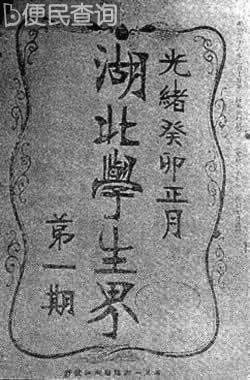 便民查询
光緒癸卯正月
湖北學生界
第一期